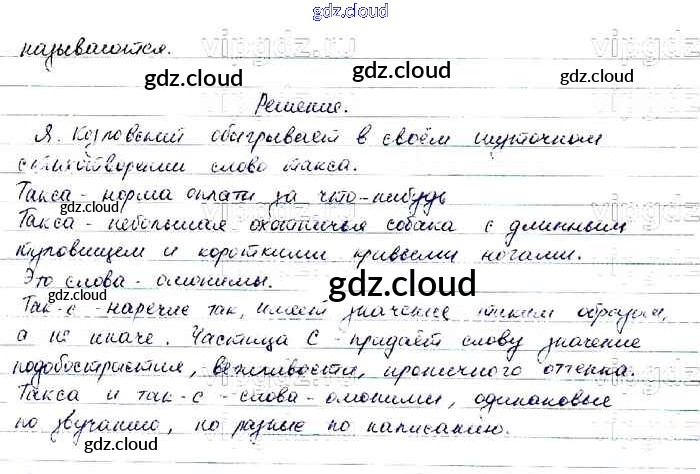 gdz.cloud
называются.
vipgdz.ru
gdz.cloud
gdz.cloud
gdz.cloud
Решение.
Я. Козловский обыгрывает в своём шуточном
стихотворении слово такса.
Такса - норма оплаты за что-нибудь
gdz.cloud
Такса - небольшая охотничья собака с длинным
туловищем и короткими кривыми ногами.
Это слова - омонимы.
gdz.cloud
gdz.cloud
Так-с - наречие так, имеет значение таким образом,
а не иначе. Частица С - придаёт слову значение
подобострастия, вежливости, ироничного оттенка.
Такса и так-с - слова - омонимы, одинаковые
по звучанию, но разные по написанию.
gdz.cloud
gdz.cloud